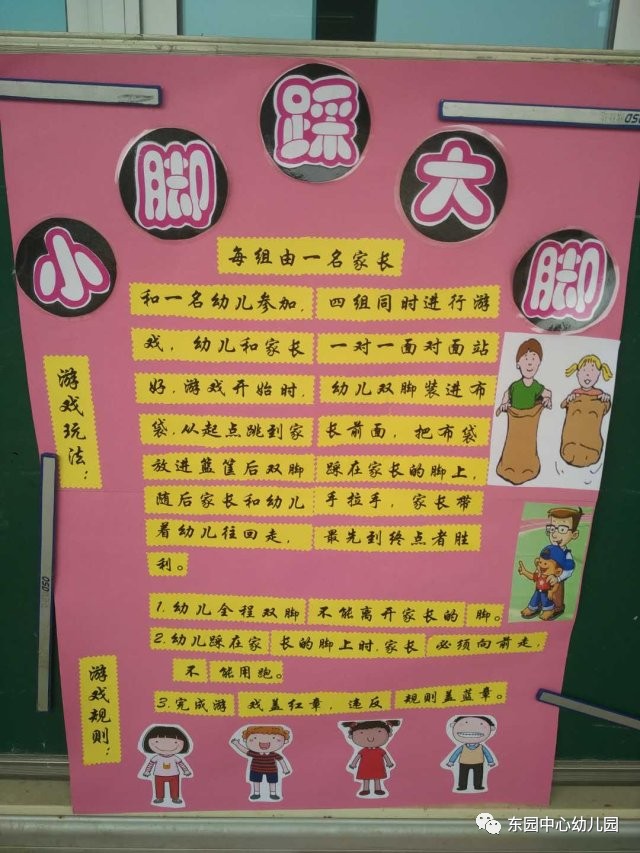 小脚踩大脚
游戏玩法：
每组由一名家长
和一名幼儿参加，四组同时进行游
戏，幼儿和家长一对一面对面站
好，游戏开始时，幼儿双脚装进布
袋，从起点跳到家长前面，把布袋
放进篮筐后双脚踩在家长的脚上，
随后家长和幼儿手拉手，家长带
着幼儿往回走，最先到终点者胜
利。
游戏规则：
1.幼儿全程双脚不能离开家长的脚。
2.幼儿踩在家长的脚上时，家长必须向前走，
不能用跑。
3.完成游戏盖红章，违反规则盖蓝章。
050
050
东园中心幼儿园